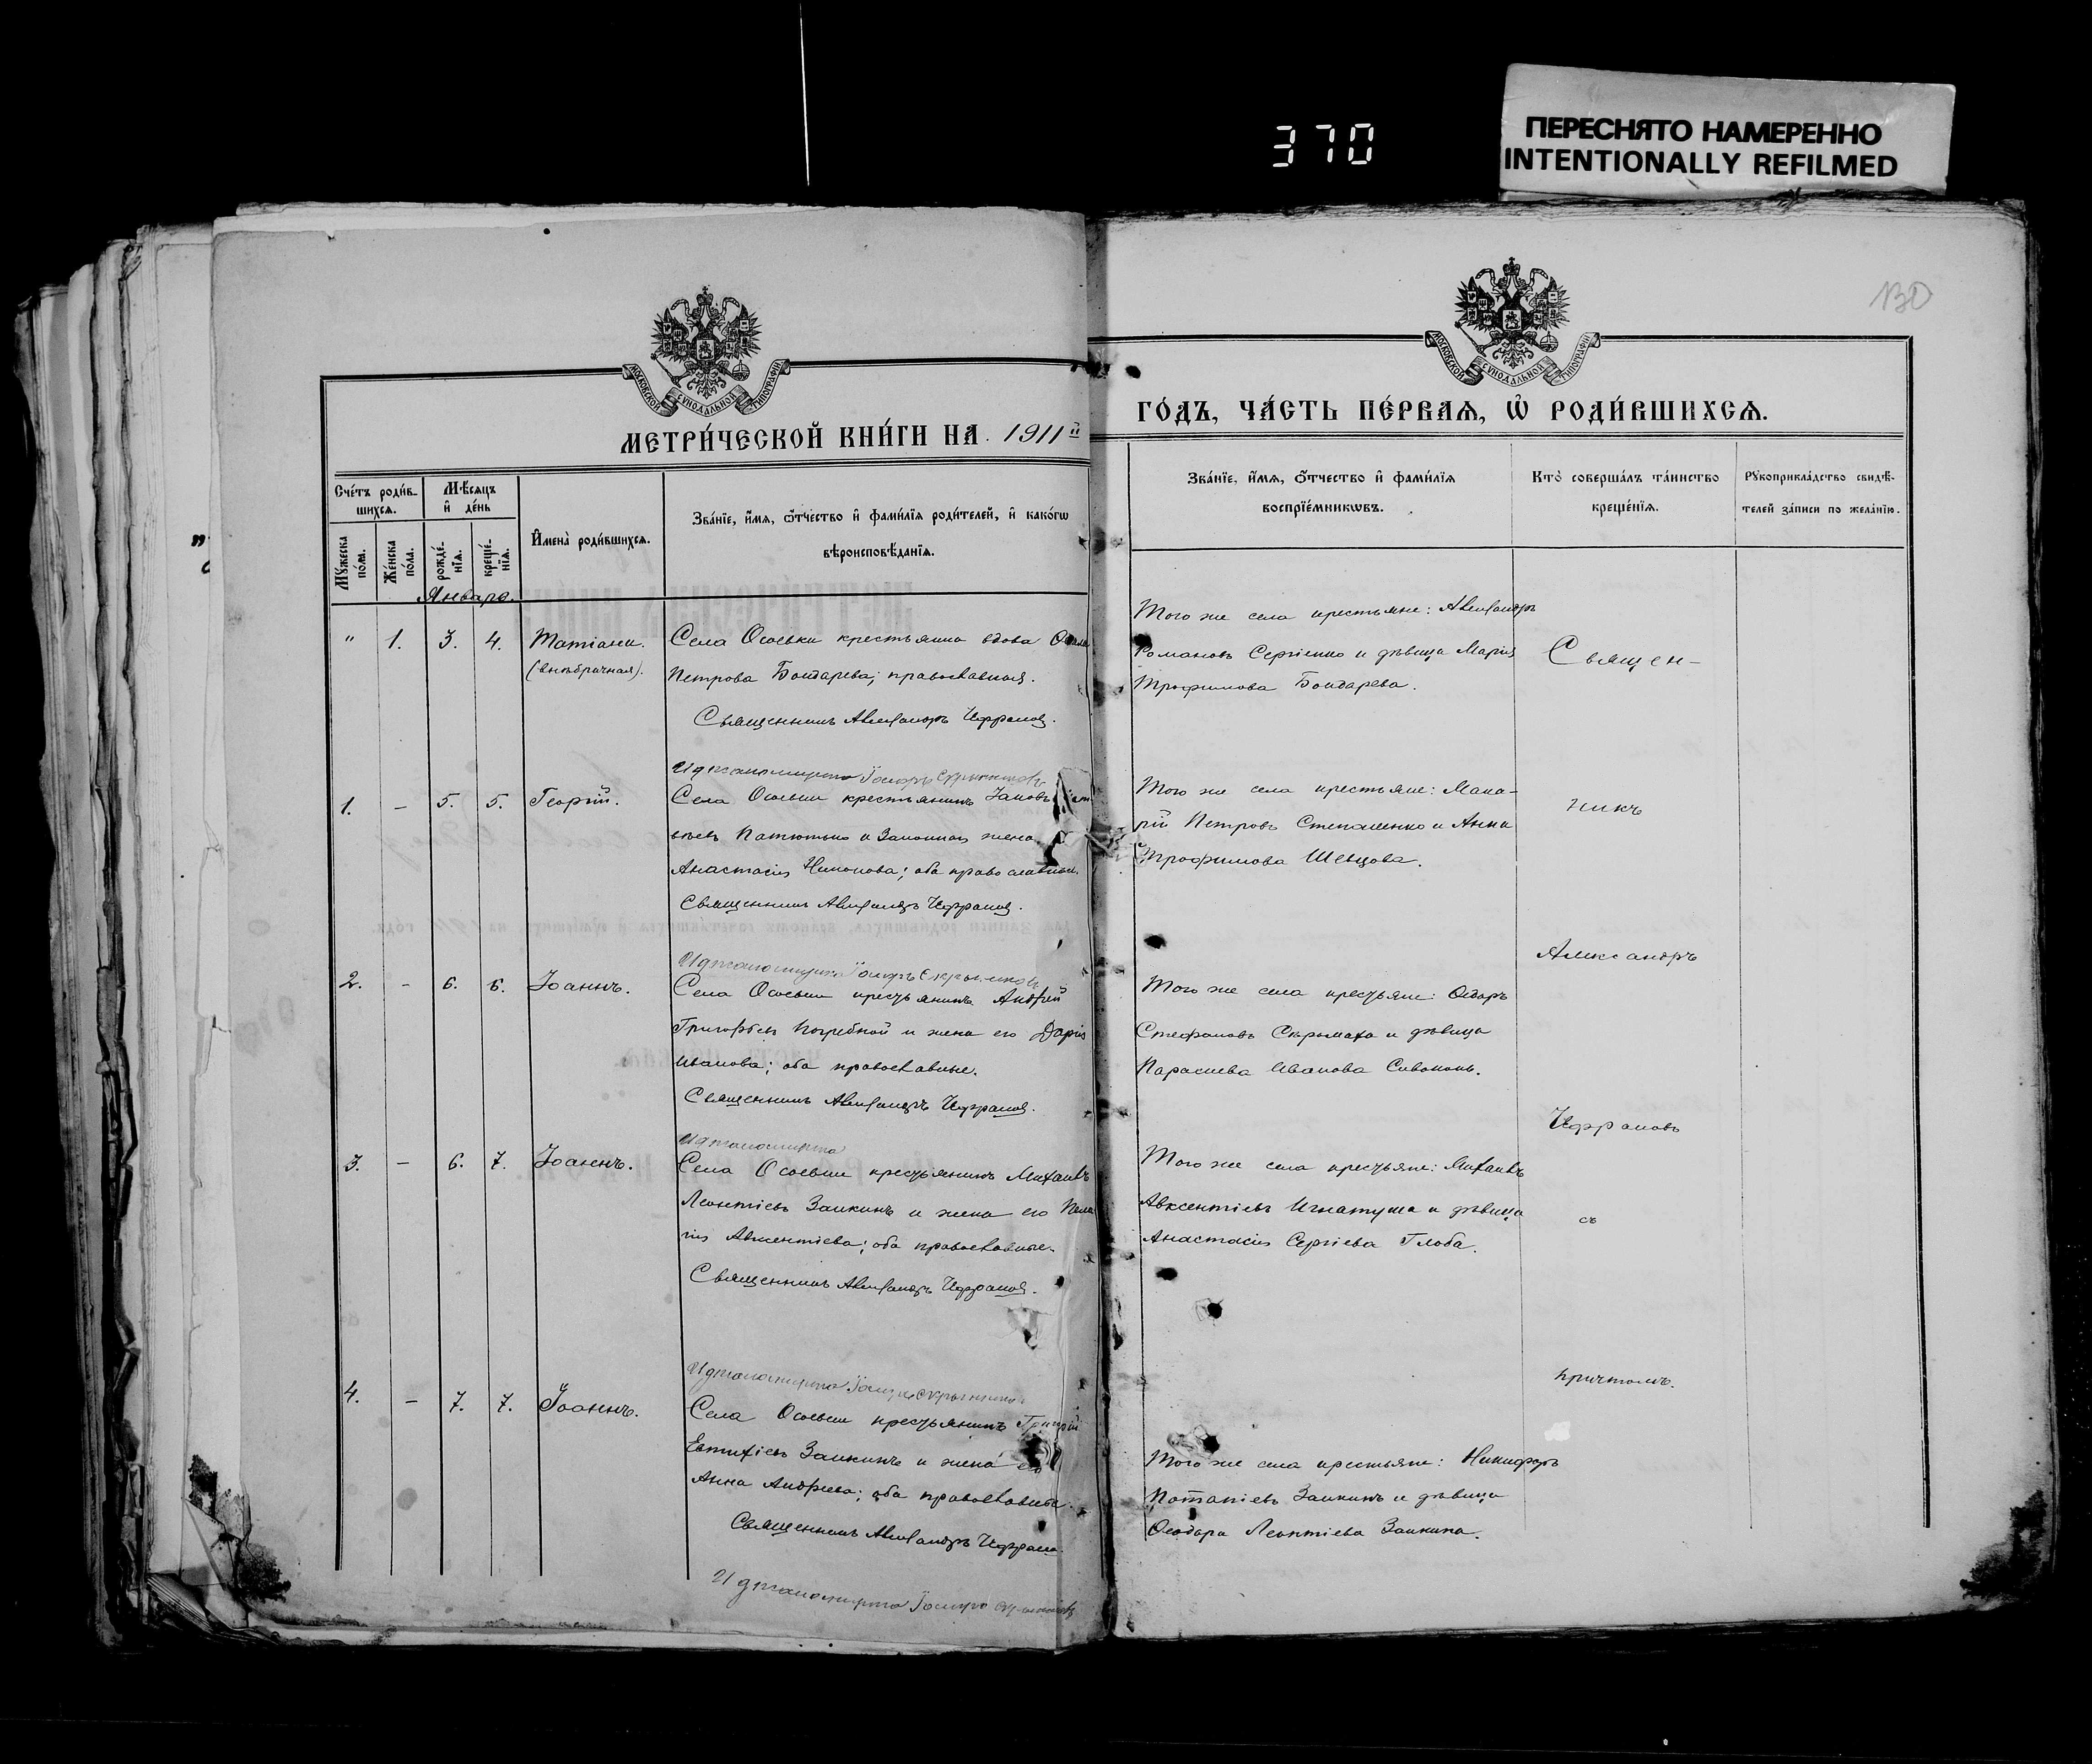 370
ПЕРЕСНЯТО НАМЕРЕННО
INTENTIONALLY REFILMED
130
МОСКОВСКОЙ СУНОДАЛЬНОЙ ТИПОГРАФІИ
МОСКОВСКОЙ СУНОДАЛЬНОЙ ТИПОГРАФІИ
МЕТРИ́ЧЕСКОЙ КНИ́ГИ НА 1911й
ГО́ДЪ, ЧА́СТЬ ПЕ́РВАЯ, Ѡ҆ РОДИ́ВШИХСЯ.
Сче́тъ роди́в-
шихся.
Мꙋ́жеска по́ла.
Же́нска по́ла.
Мѣ́сяцъ
и҆ де́нь
рожде́-
нїя.
креще́-
нїя.
И҆мена̀ роди́вшихся.
Зва́нїе, и҆́мя, ѻ҆́тчество и҆ фами́лїя роди́телей, и҆ како́гѡ
вѣроисповѣ́данїя.
Зва́нїе, и҆́мя, ѻ҆́тчество и҆ фами́лїя
воспрїе́мникѡвъ.
Кто̀ соверша́лъ та́инство
креще́нїя.
Рꙋкоприкла́дство свидѣ́-
телей за́писи по жела́нїю.
Января.
" 1. 3. 4. Татіана.
(внѣбрачная).
Села Осоевки крестьянка вдова
Петрова Бондарева; православная.
Священникъ Александръ Чефрановъ.
Того же села крестьяне: Александръ
Романовъ Сергіенко и дѣвица Марія
Трофимова Бондарева.
И д псаломщика
1. – 5. 5. Георгій.
Села Осоевки крестьянинъ Іаковъ
Патютько и законная жена
Анастасія Никонова; оба православные.
Священникъ Александръ Чефрановъ.
Того же села крестьяне: Мака-
рій Петровъ Степаненко и Анна
Трофимова Шевцова.
И д псаломщика
2. – 6. 6. Іоаннъ.
Села Осоевки крестьянинъ Андрей
Григорьевъ Погребной и жена его Дарія
Иванова; оба православные.
Священникъ Александръ Чефрановъ.
Того же села крестьяне: Ѳедоръ
Стефановъ Скрымаха и дѣвица
Параскева Иванова Сивоконь.
И д псаломщика
3. – 6. 7. Іоаннъ.
Села Осоевки крестьянинъ Михаилъ
Леонтіевъ Заикинъ и жена его
Авксентіева; оба православные.
Священникъ Александръ Чефрановъ.
Того же села крестьяне: Михаилъ
Авксентіевъ Игнатуша и дѣвица
Анастасія Сергіева Глоба.
И д псаломщика
4. – 7. 7. Іоаннъ.
Села Осоевки крестьянинъ Григорій
Евтихіевъ Заикинъ и жена его
Анна Андреева; оба православные.
Священникъ Александръ Чефрановъ
И д псаломщика
Того же села крестьяне: Никифоръ
Потапіевъ Заикинъ и дѣвица
Ѳеодора Леонтіева Заикина.
Священ-
никъ
Александръ
Чефрановъ
съ
причтомъ.